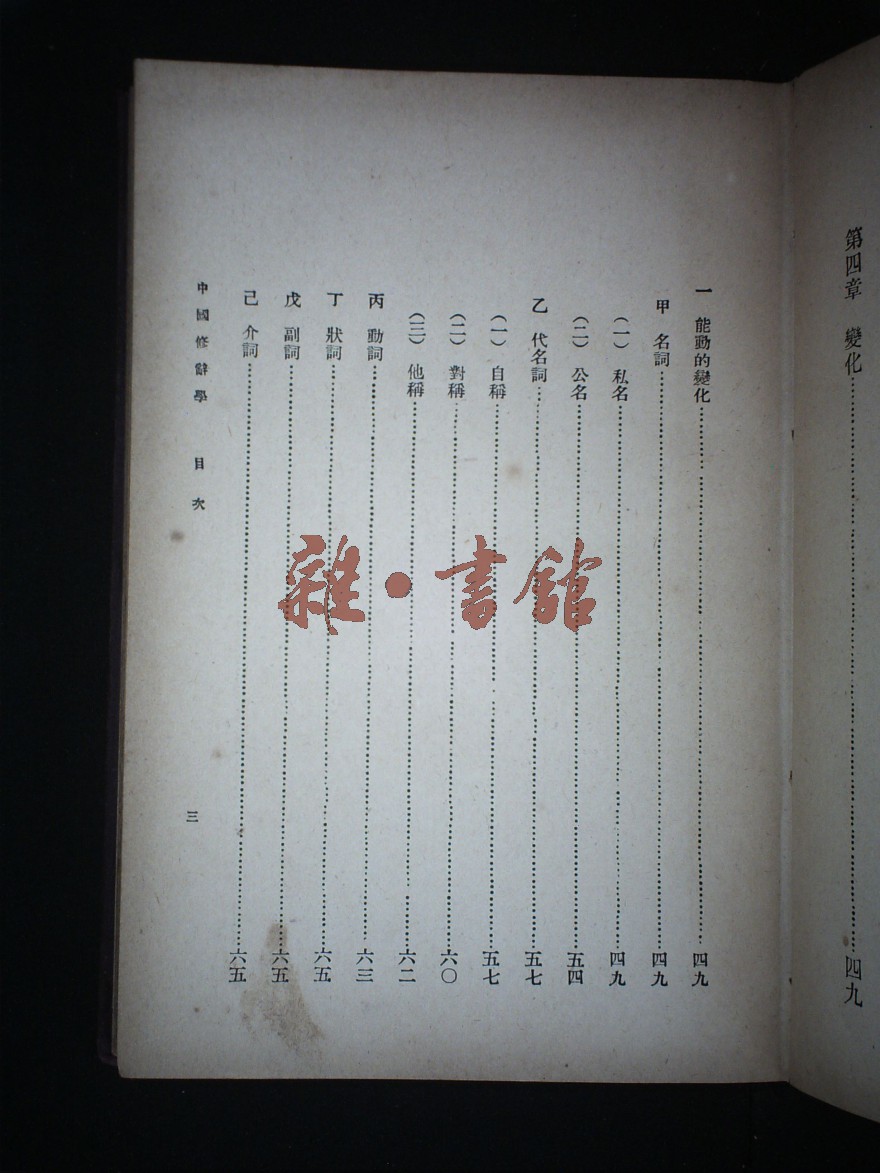 第四章　變化……四九
一　能動的變化……四九
甲　名詞……四九
（一）　私名……四九
（二）　公名……五四
乙　代名詞……五七
（一）　自稱……五七
（二）　對稱……六〇
（三）　他稱……六二
丙　動詞……六三
丁　狀詞……六五
戊　副詞……六五
己　介詞……六五
中國修辭學　目次
三
雜·書館